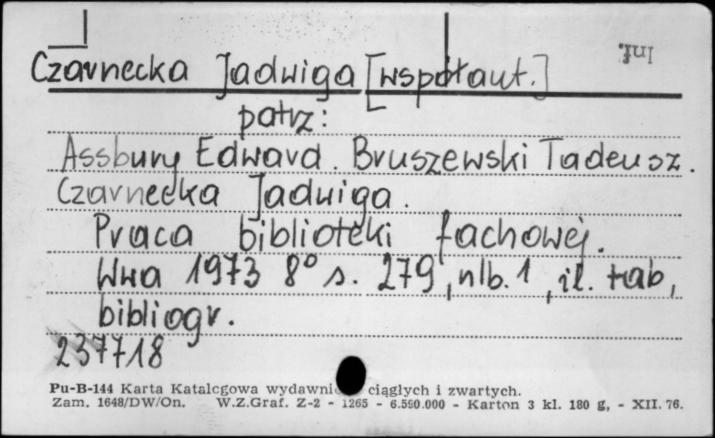 Inf.
Czarnecka Jadwiga [współaut.]
patrz:
Assbury Edward. Bruszewski Tadeusz.
Czarnecka Jadwiga.
Praca biblioteki fachowej.
Wwa 1973 8° s. 279, nlb. 1, il. tab,
bibliogr.
237718
Pu-B-144 Karta Katalcgowa wydawnic ciągłych i zwartych.
Zam. 1648/DW/On. W.Z.Graf. Z-2 - 1265 - 6.550.000 - Karton 3 kl. 180 g, - XII. 76.